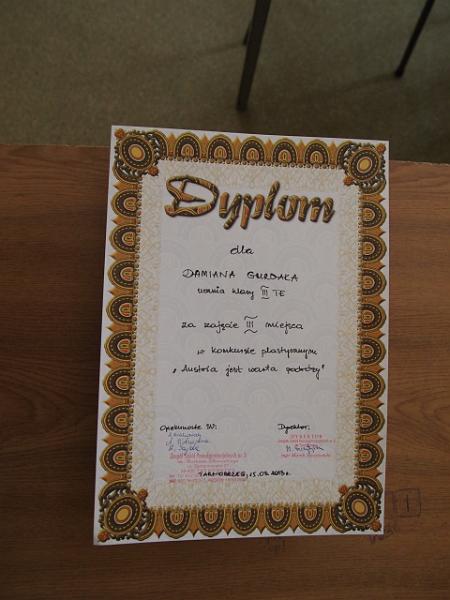 Dyplom
dla
DAMIANA GWOZDAKA
ucznia klasy III TE
za zajęcie III miejsca
w konkursie plastycznym
"Austria jest warta podróży"
Opiekunowie SU:
Dyrektor:
DYREKTOR
Zespół Szkół Ponadgimnazjalnych nr 3
TARNOBRZEG, 15.03.2013 r.